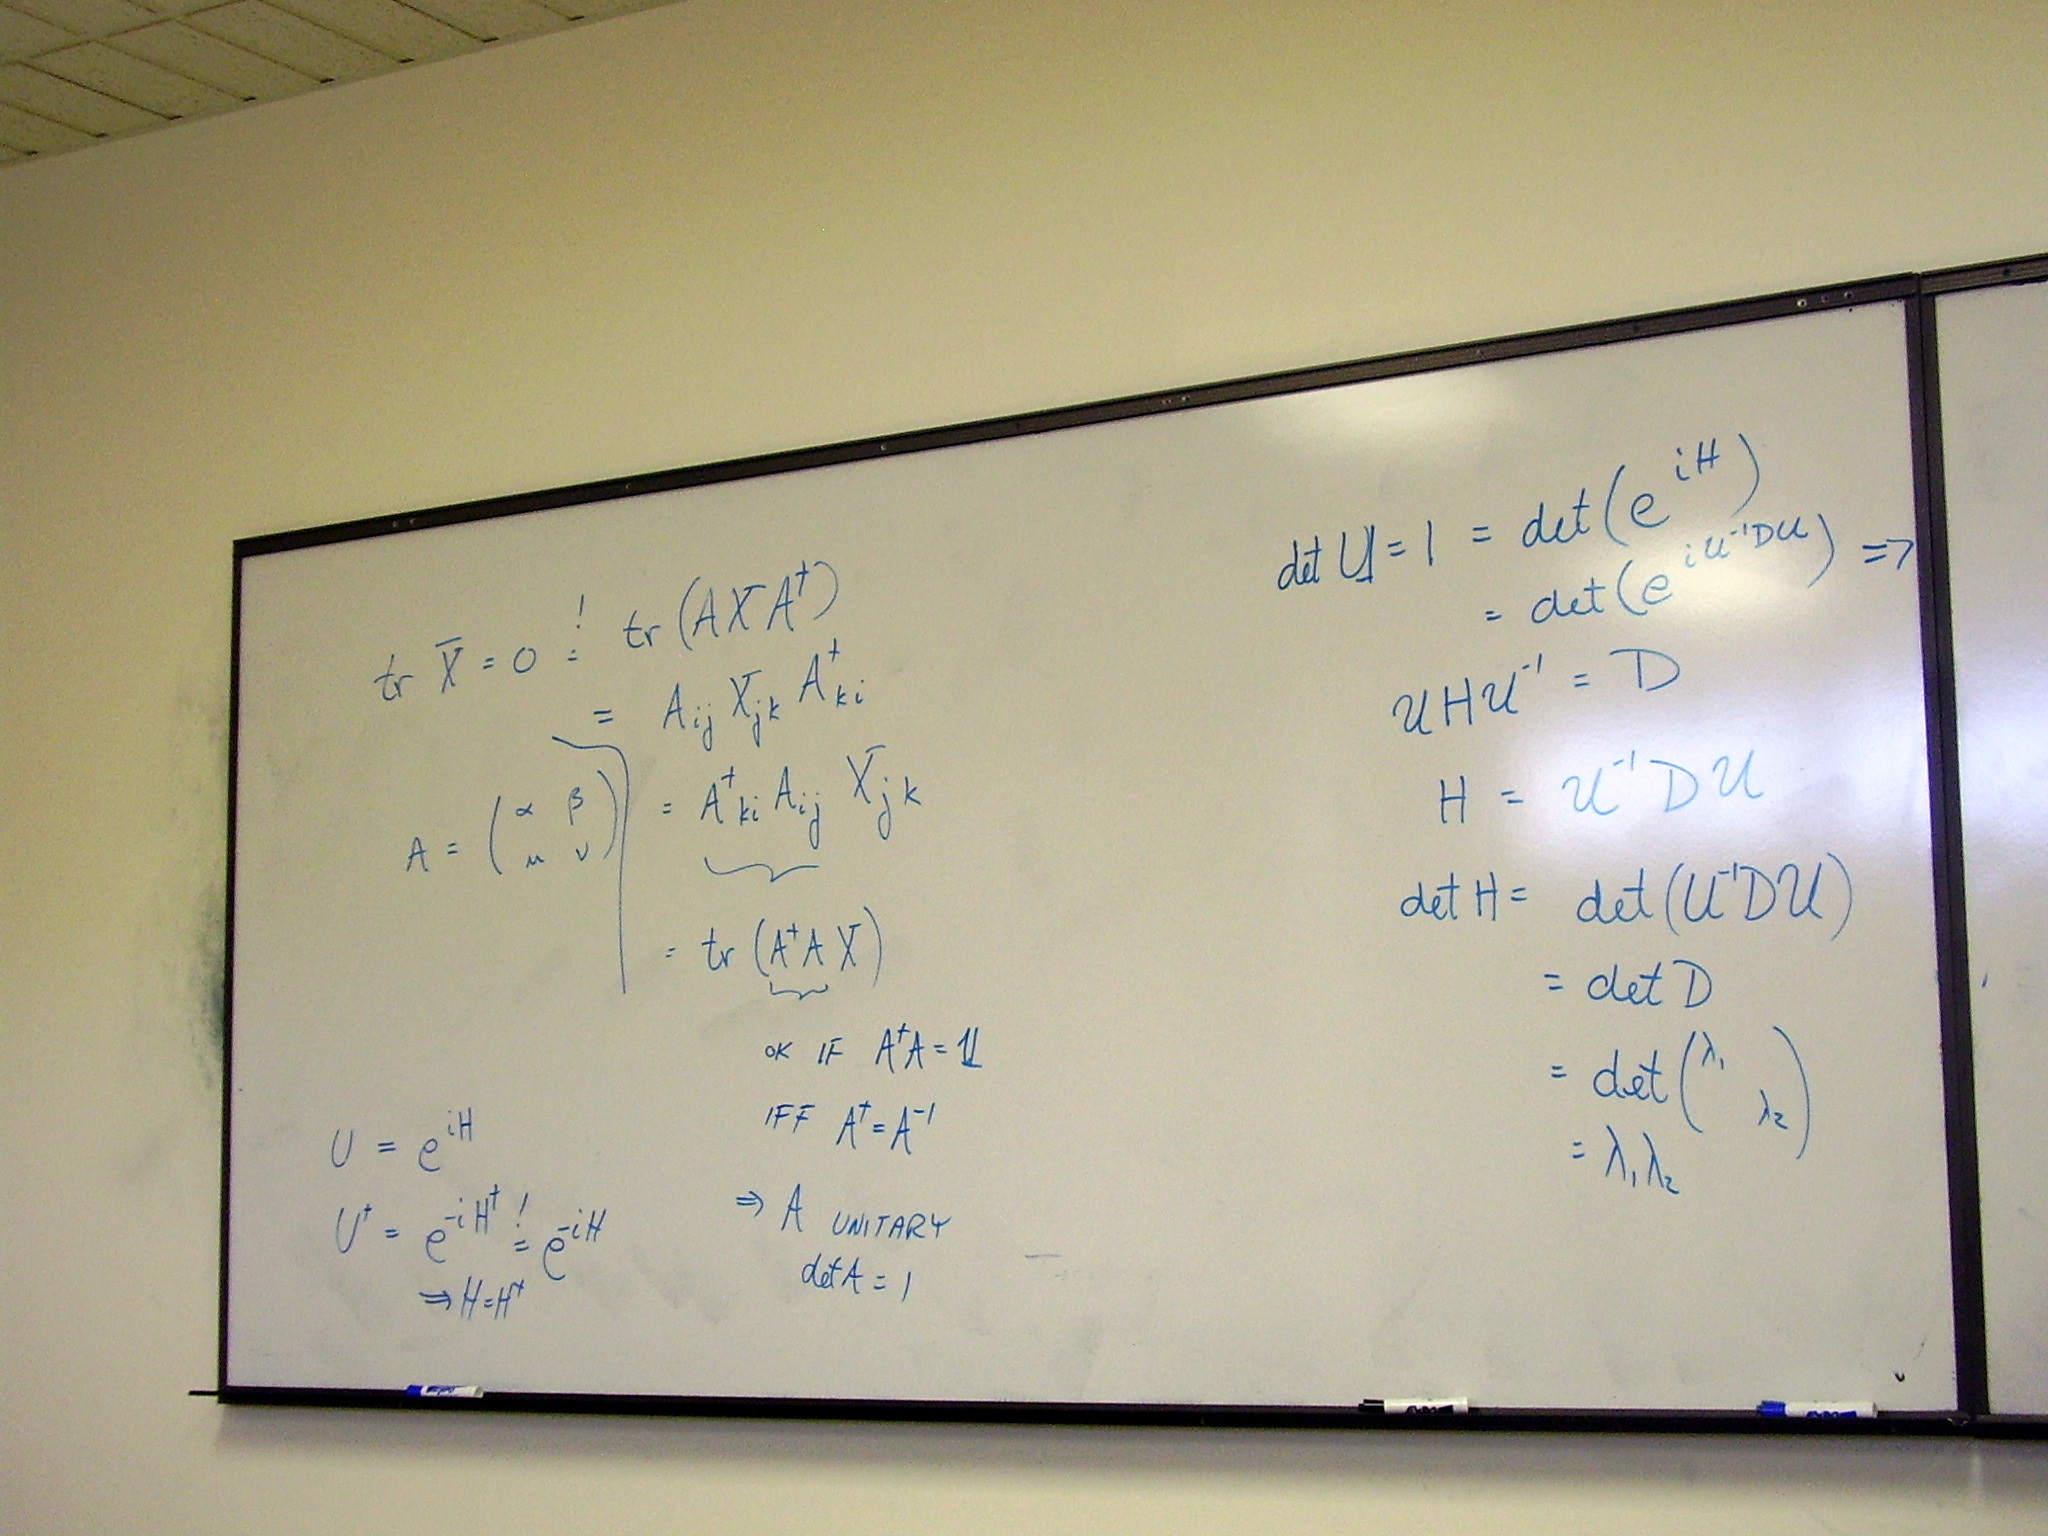 tr X = 0 =! tr (A X A†)
= A_ij X_jk A†_ki
A = ( α β
μ ν )
= A†_ki A_ij X_jk
= tr (A†A X)
OK IF A†A = 𝟙
IFF A† = A⁻¹
⇒ A UNITARY
det A = 1
U = e^{iH}
U† = e^{-iH†} =! e^{-iH}
⇒ H = H†
det U = 1 = det (e^{iH})
= det (e^{i𝒰⁻¹D𝒰}) ⇒
𝒰H𝒰⁻¹ = D
H = 𝒰⁻¹D𝒰
det H = det (𝒰⁻¹D𝒰)
= det D
= det ( λ₁
λ₂ )
= λ₁λ₂